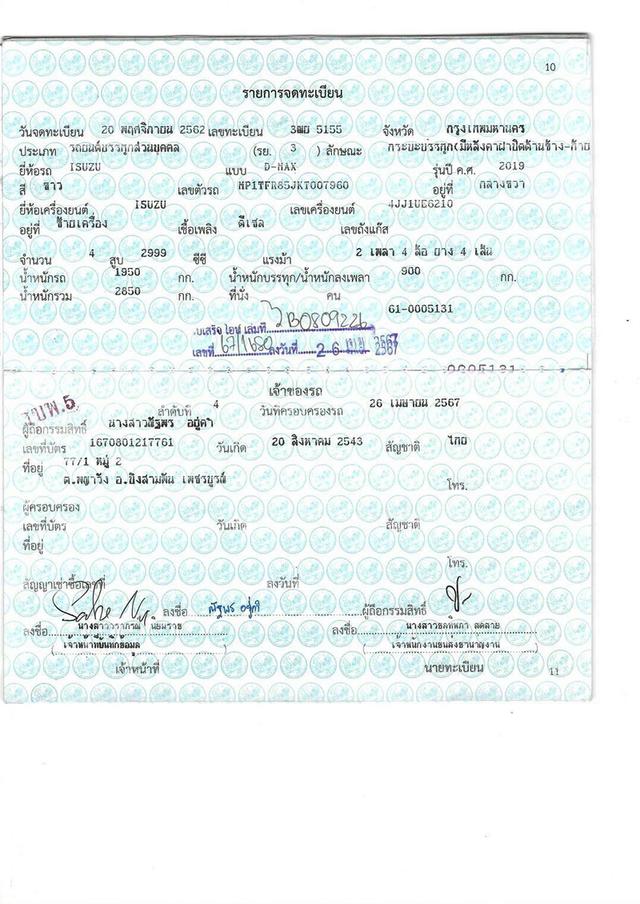 10
รายการจดทะเบียน
วันจดทะเบียน 20 พฤศจิกายน 2562 เลขทะเบียน 3ฒย 5155 จังหวัด กรุงเทพมหานคร
ประเภท รถยนต์บรรทุกส่วนบุคคล (รย. 3 ) ลักษณะ กระบะบรรทุก(มีหลังคาฝาปิดด้านข้าง-ท้าย
ยี่ห้อรถ ISUZU แบบ D-MAX รุ่นปี ค.ศ. 2019
สี ขาว เลขตัวรถ MP1TFR85JKT007960 อยู่ที่ กลางขวา
ยี่ห้อเครื่องยนต์ ISUZU เลขเครื่องยนต์ 4JJ1UE6210
อยู่ที่ ซ้ายเครื่อง เชื้อเพลิง ดีเซล เลขถังแก๊ส
จำนวน 4 สูบ 2999 ซีซี แรงม้า 2 เพลา 4 ล้อ ยาง 4 เส้น
น้ำหนักรถ 1950 กก. น้ำหนักบรรทุก/น้ำหนักลงเพลา 900 กก.
น้ำหนักรวม 2850 กก. ที่นั่ง คน
61-0005131
ใบเสร็จ โอน เล่มที่ 2B0809226
เลขที่ 67/1680 ลงวันที่ 26 เม.ย. 2567
0005131
เจ้าของรถ
ขบพ.5
ลำดับที่ 4 วันที่ครอบครองรถ 26 เมษายน 2567
ผู้ถือกรรมสิทธิ์ นางสาวณัฐพร อยู่คำ
เลขที่บัตร 1670801217761 วันเกิด 20 สิงหาคม 2543 สัญชาติ ไทย
ที่อยู่ 77/1 หมู่ 2
ต.พญาวัง อ.บึงสามพัน เพชรบูรณ์ โทร.
ผู้ครอบครอง
เลขที่บัตร วันเกิด สัญชาติ
ที่อยู่
โทร.
สัญญาเช่าซื้อเลขที่ ลงวันที่
ลงชื่อ ณัฐพร อยู่คำ ผู้ถือกรรมสิทธิ์
ลงชื่อ นางสาววราภรณ์ ลงชื่อ นางสาว
เจ้าหน้าที่บันทึกข้อมูล เจ้าพนักงานขนส่งชำนาญงาน
เจ้าหน้าที่ นายทะเบียน
11